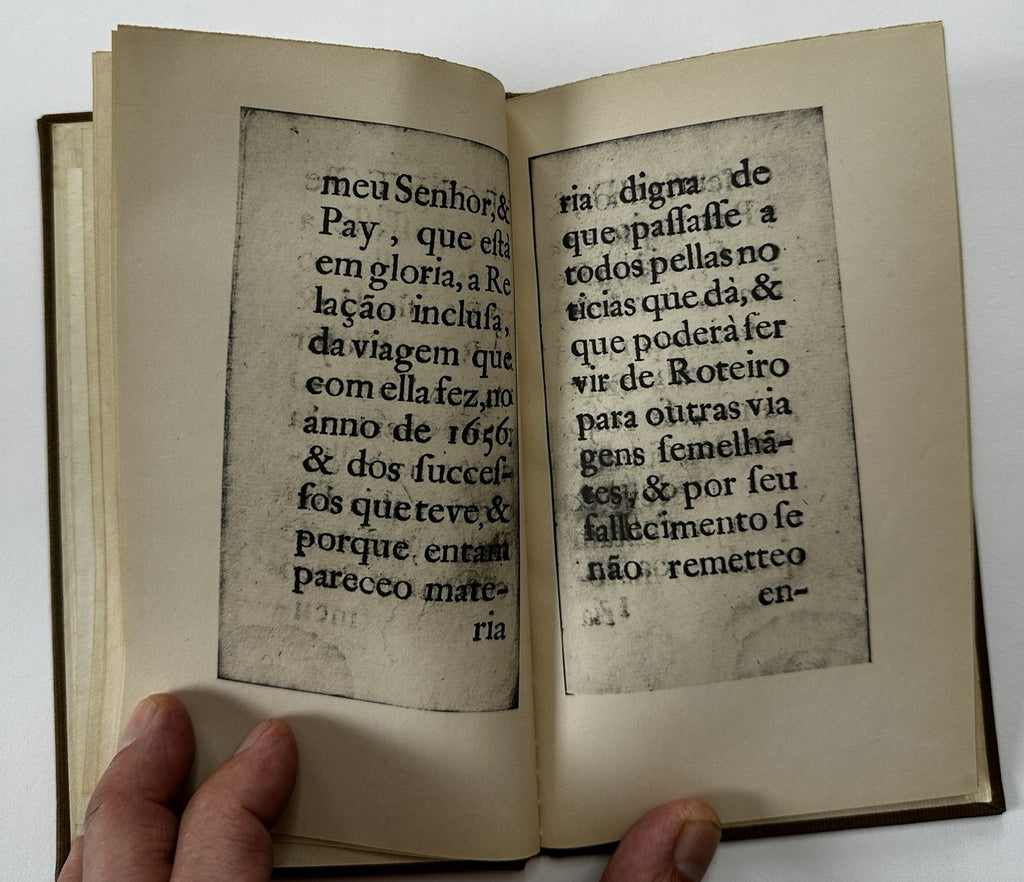 meu Senhor, &
Pay , que eſtà
em gloria, a Re
lação incluſa,
da viagem que
com ella fez, no
anno de 1656.
& dos ſucceſ-
ſos que teve, &
porque entam
pareceo mate-
ria
ria digna de
que paſſaſſe a
todos pellas no
ticias que dà, &
que poderà ſer
vir de Roteiro
para outras via
gens ſemelhã-
tes, & por ſeu
fallecimento ſe
não remetteo
en-